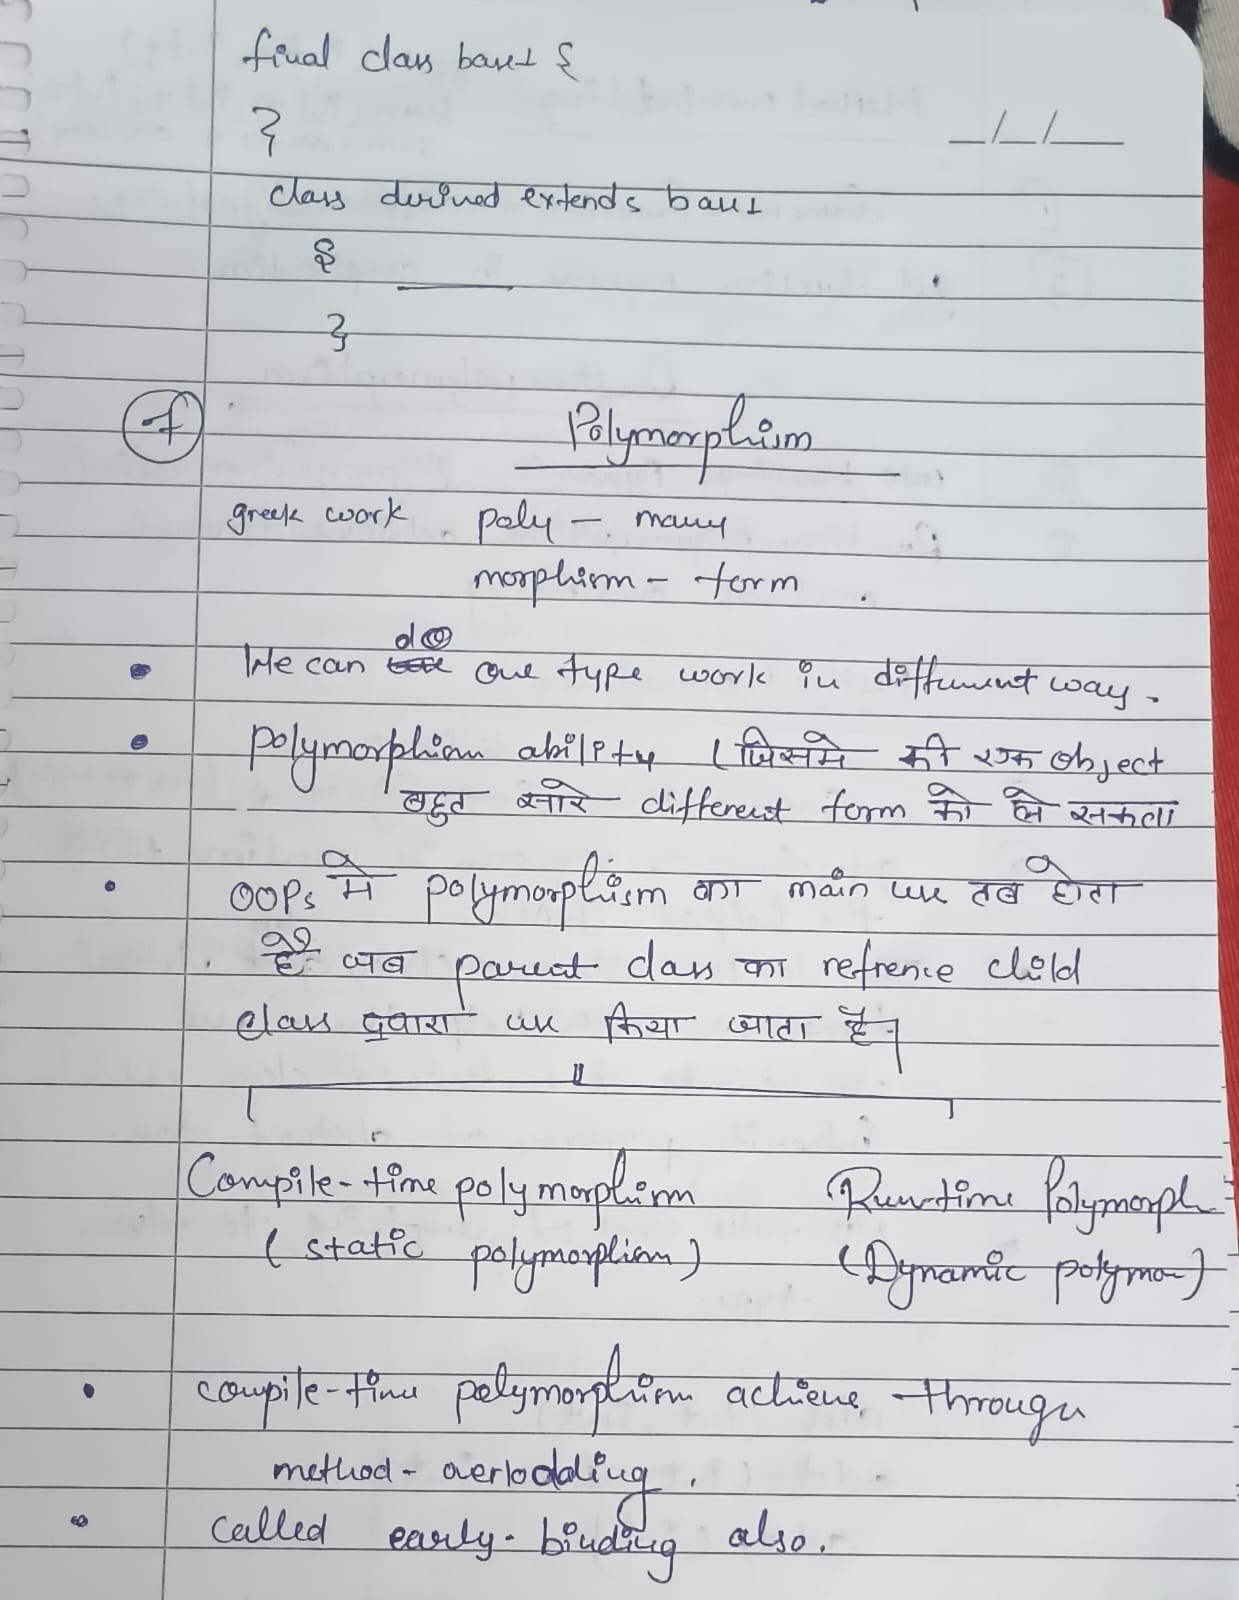 final class base {
}
_/_/__
class derived extends base
{
}
7
Polymorphism
greek work poly - many
morphism - form
do
We can one type work in different way.
polymorphism ability (जिसमे की एक object
बहुत सारे different form को ले सकता
OOPs मे polymorphism का main use तब होता
है जब parent class का refrence child
class द्वारा use किया जाता है।
Compile-time polymorphism Run-time Polymorph
(static polymorphism) (Dynamic polymor)
compile-time polymorphism achieve through
method-overlodding.
called early-binding also.